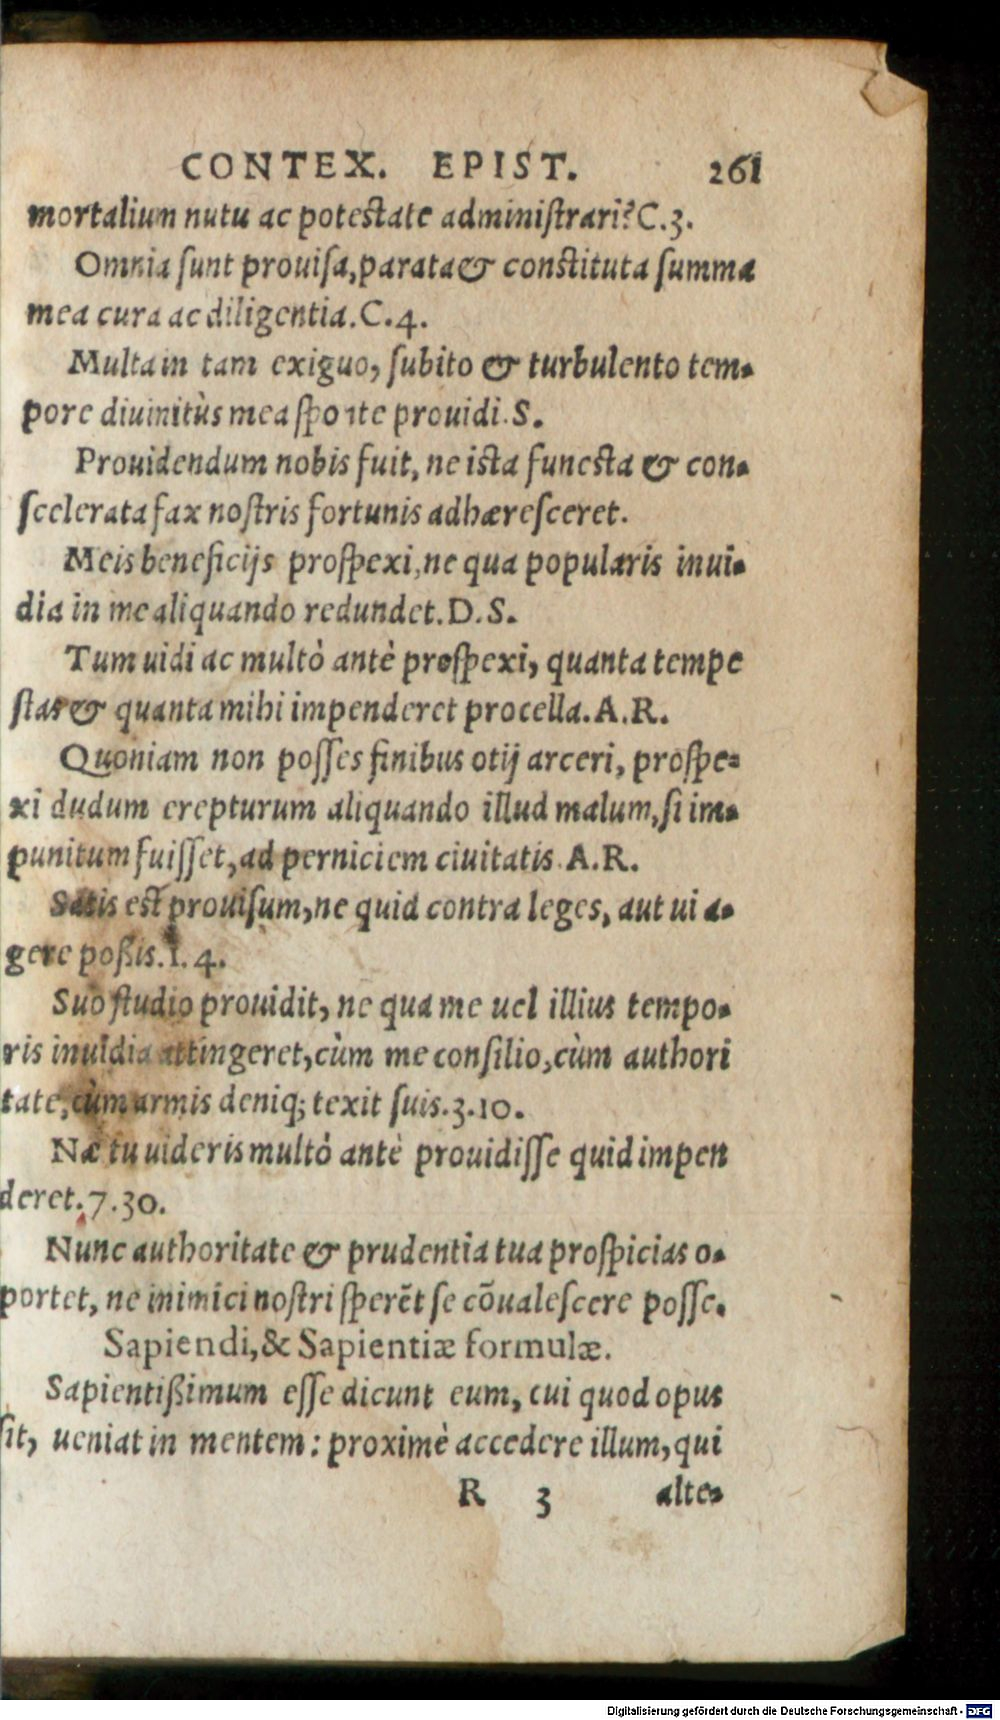 CONTEX. EPIST. 261
mortalium nutu ac potestate administrari? C.3.
Omnia sunt prouisa, parata & constituta summa
mea cura ac diligentia. C.4.
Multa in tam exiguo, subito & turbulento tem-
pore diuinitùs mea sponte prouidi. S.
Prouidendum nobis fuit, ne ista funesta & con-
scelerata fax nostris fortunis adhæresceret.
Meis beneficijs prospexi, ne qua popularis inui-
dia in me aliquando redundet. D. S.
Tum uidi ac multò antè prospexi, quanta tempe
stas & quanta mihi impenderet procella. A. R.
Quoniam non posses finibus otij arceri, prospe-
xi dudum erepturum aliquando illud malum, si im-
punitum fuisset, ad perniciem ciuitatis. A. R.
Satis est prouisum, ne quid contra leges, aut ui a-
gere poßis. I. 4.
Suo studio prouidit, ne qua me uel illius tempo-
ris inuidia attingeret, cùm me consilio, cùm authori
tate, cùm armis deniq; texit suis. 3. 10.
Næ tu uideris multò antè prouidisse quid impen
deret. 7. 30.
Nunc authoritate & prudentia tua prospicias o-
portet, ne inimici nostri sperēt se cōualescere posse.
Sapiendi, & Sapientiæ formulæ.
Sapientißimum esse dicunt eum, cui quod opus
sit, ueniat in mentem: proximè accedere illum, qui
R 3 alte-
Digitalisierung gefördert durch die Deutsche Forschungsgemeinschaft - DFG